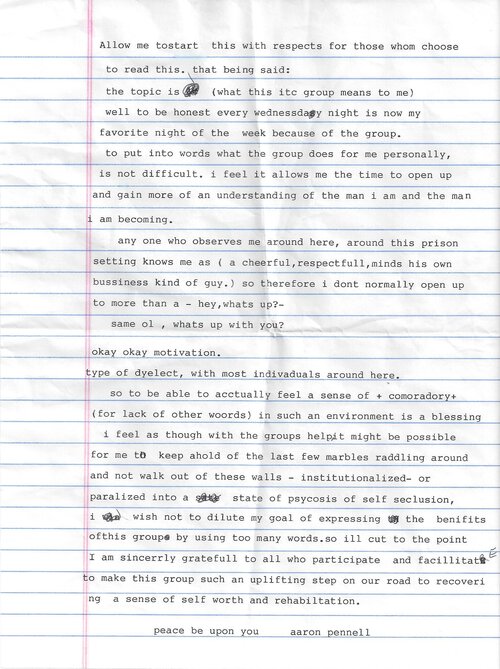 Allow me tostart this with respects for those whom choose
to read this. that being said:
the topic is (what this itc group means to me)
well to be honest every wednesday night is now my
favorite night of the week because of the group.
to put into words what the group does for me personally,
is not difficult. i feel it allows me the time to open up
and gain more of an understanding of the man i am and the man
i am becoming.
any one who observes me around here, around this prison
setting knows me as ( a cheerful,respectfull,minds his own
bussiness kind of guy.) so therefore i dont normally open up
to more than a - hey,whats up?-
same ol , whats up with you?
okay okay motivation.
type of dyelect, with most indivaduals around here.
so to be able to acctually feel a sense of + comoradory+
(for lack of other woords) in such an environment is a blessing
i feel as though with the groups help,it might be possible
for me to keep ahold of the last few marbles raddling around
and not walk out of these walls - institutionalized- or
paralized into a state of psycosis of self seclusion,
i wish not to dilute my goal of expressing the benifits
ofthis group by using too many words.so ill cut to the point
I am sincerrly gratefull to all who participate and facillitatE
to make this group such an uplifting step on our road to recoveri
ng a sense of self worth and rehabiltation.
peace be upon you aaron pennell